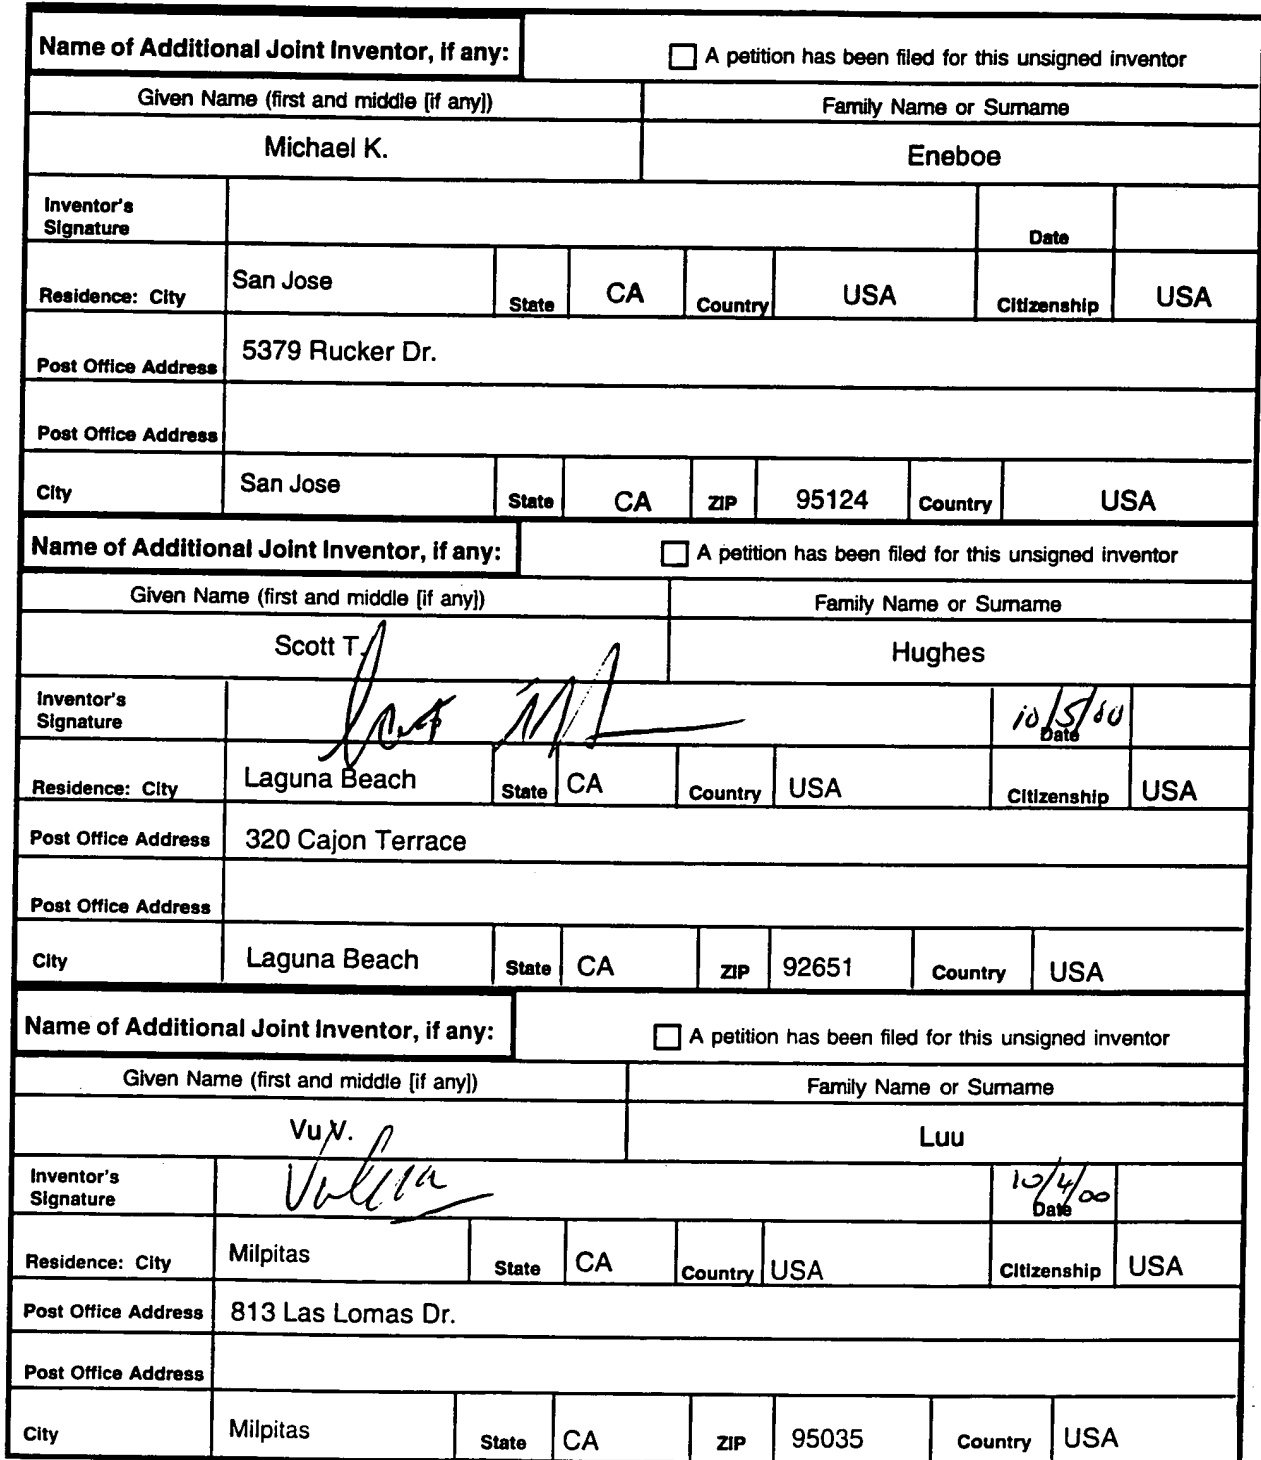 Name of Additional Joint Inventor, if any: A petition has been filed for this unsigned inventor
Given Name (first and middle [if any]) Family Name or Surname
Michael K. Eneboe
Inventor's Signature Date
Residence: City San Jose State CA Country USA Citizenship USA
Post Office Address 5379 Rucker Dr.
Post Office Address
City San Jose State CA ZIP 95124 Country USA
Name of Additional Joint Inventor, if any: A petition has been filed for this unsigned inventor
Given Name (first and middle [if any]) Family Name or Surname
Scott T. Hughes
Inventor's Signature 10/5/00 Date
Residence: City Laguna Beach State CA Country USA Citizenship USA
Post Office Address 320 Cajon Terrace
Post Office Address
City Laguna Beach State CA ZIP 92651 Country USA
Name of Additional Joint Inventor, if any: A petition has been filed for this unsigned inventor
Given Name (first and middle [if any]) Family Name or Surname
Vu V. Luu
Inventor's Signature 10/4/00 Date
Residence: City Milpitas State CA Country USA Citizenship USA
Post Office Address 813 Las Lomas Dr.
Post Office Address
City Milpitas State CA ZIP 95035 Country USA